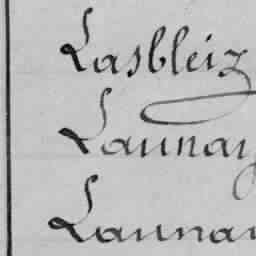 Lasbleiz
Launay
Launay